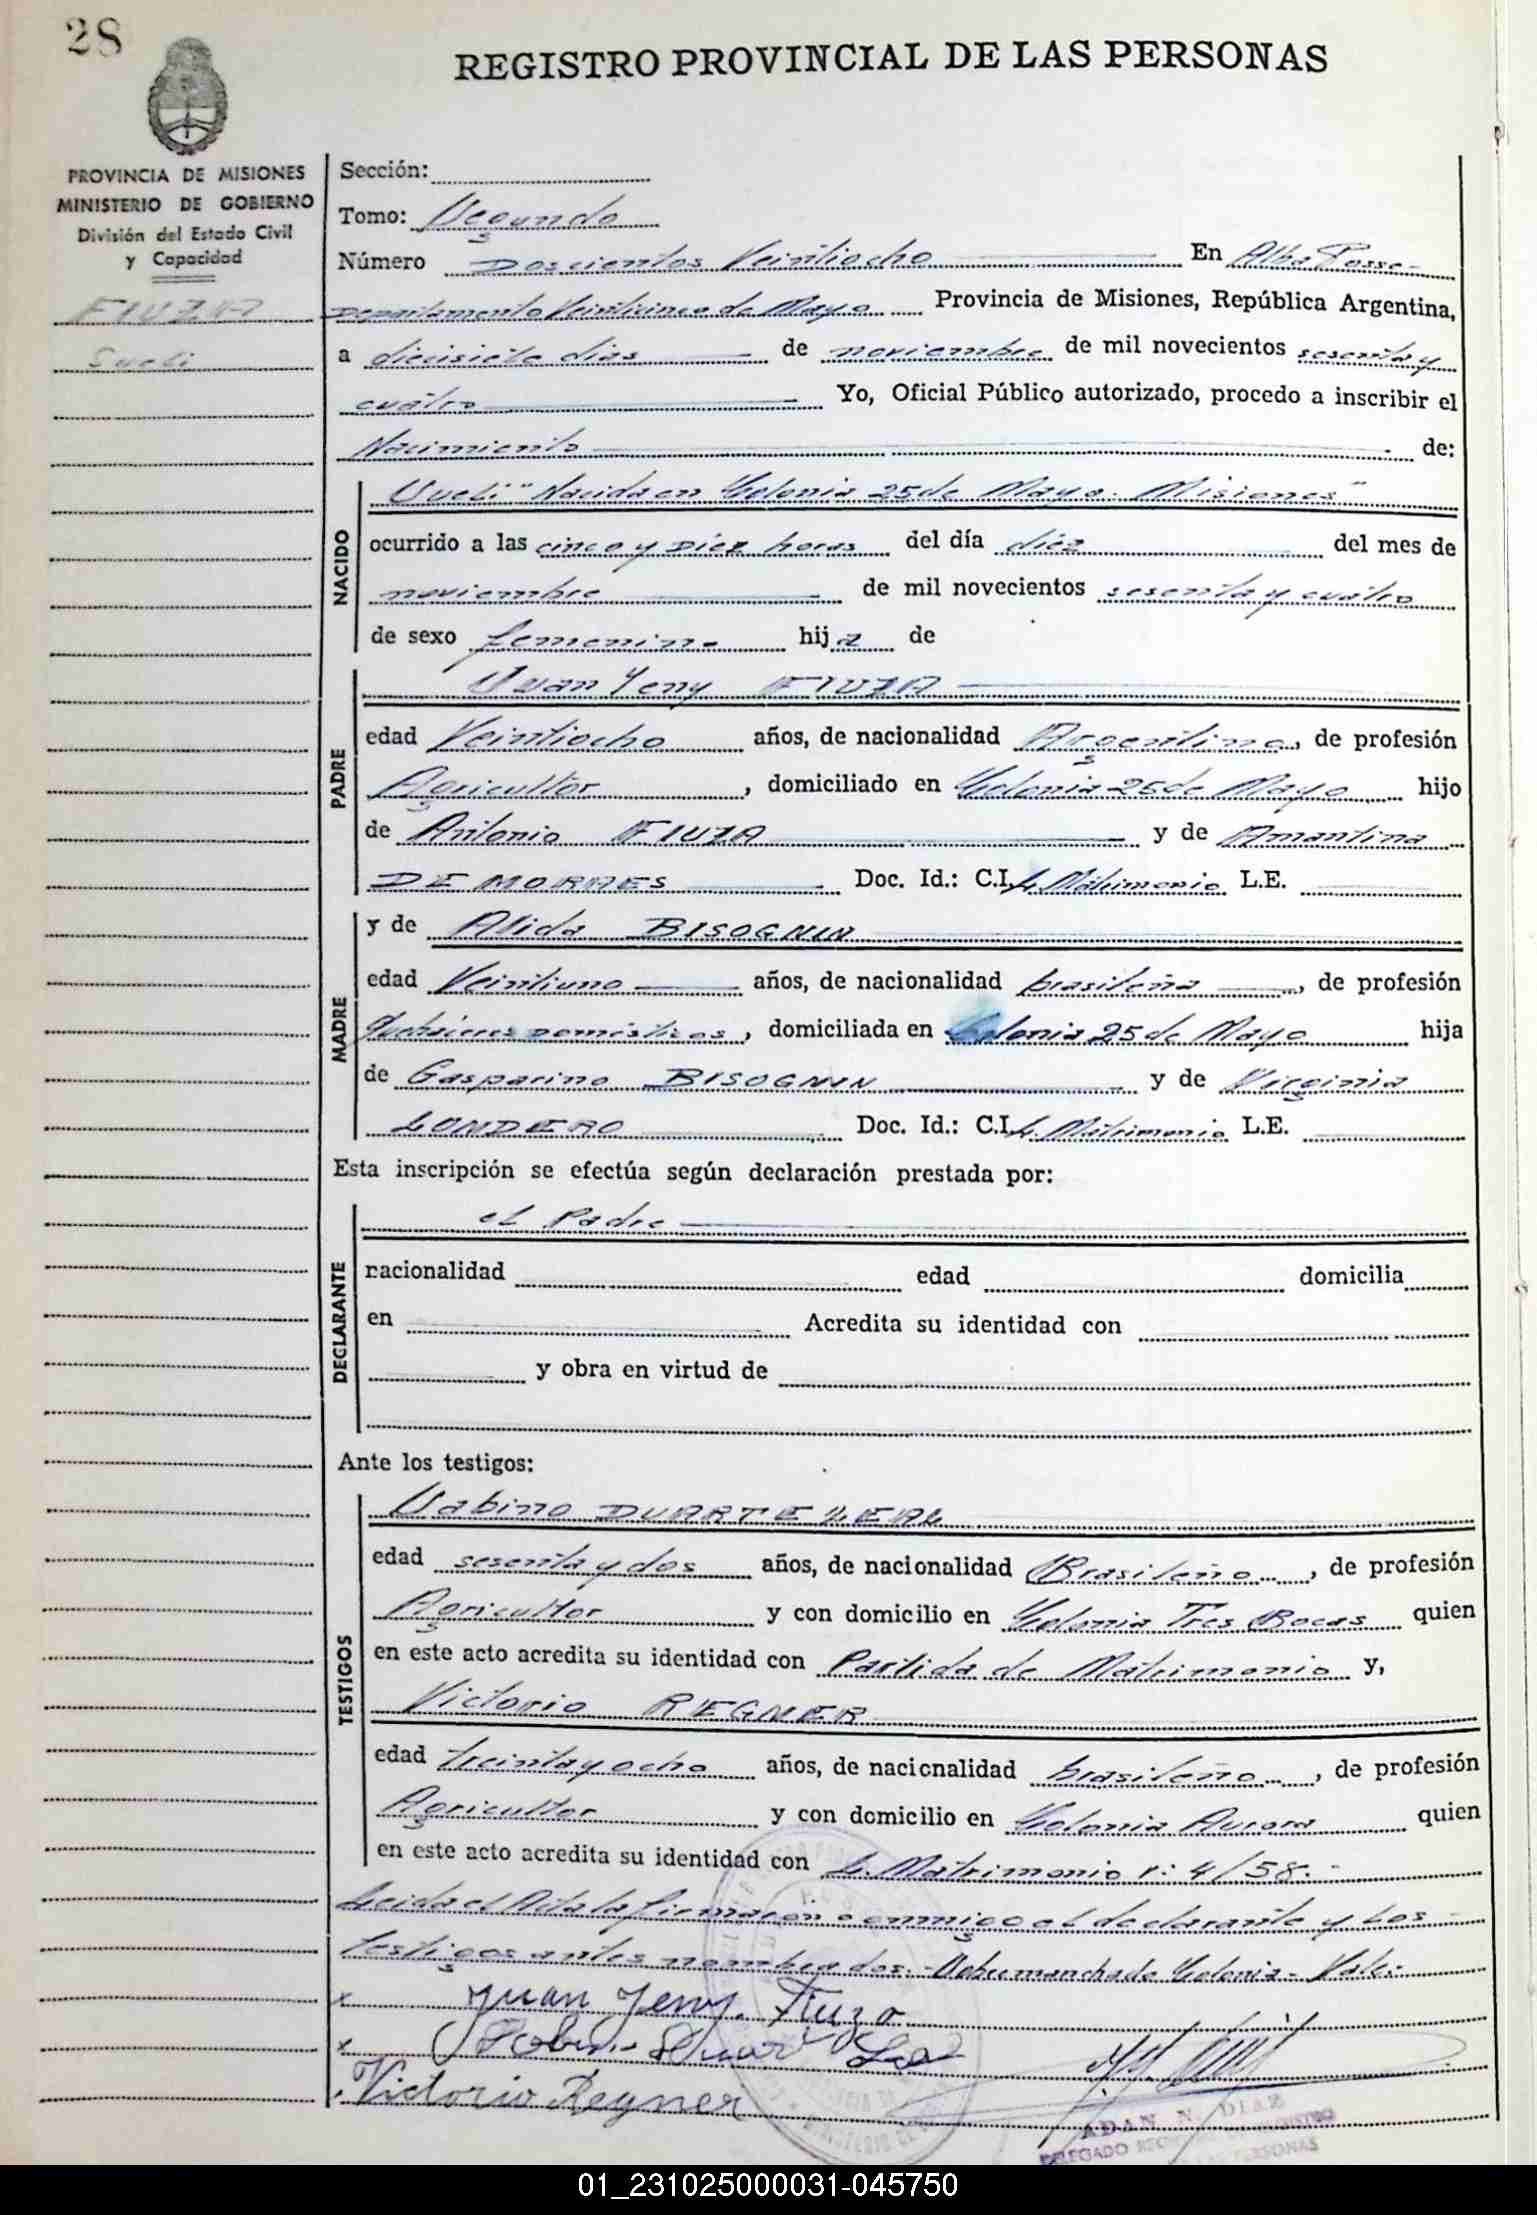 28
REGISTRO PROVINCIAL DE LAS PERSONAS
PROVINCIA DE MISIONES
MINISTERIO DE GOBIERNO
División del Estado Civil
y Capacidad
FIUZA
Sueli
Sección:
Tomo: Segundo
Número Doscientos Veintiocho En Alba Posse-
Departamento Veinticinco de Mayo Provincia de Misiones, República Argentina,
a diecisiete días de noviembre de mil novecientos sesenta y
cuatro Yo, Oficial Público autorizado, procedo a inscribir el
Nacimiento de:
NACIDO
Sueli "Nacida en Colonia 25 de Mayo. Misiones"
ocurrido a las cinco y Diez horas del día diez del mes de
noviembre de mil novecientos sesenta y cuatro
de sexo femenino hija de
PADRE
Juan Yeny FIUZA
edad Veintiocho años, de nacionalidad Argentina, de profesión
Agricultor, domiciliado en Colonia 25 de Mayo hijo
de Antonio FIUZA y de Amantina
DE MORAES Doc. Id.: C.I. L. Matrimonio L.E.
MADRE
y de Alida BISOGNIN
edad Veintiuno años, de nacionalidad brasileña, de profesión
Quehaceres Domésticos, domiciliada en Colonia 25 de Mayo hija
de Gasparino BISOGNIN y de Virginia
LONDERO Doc. Id.: C.I. L. Matrimonio L.E.
Esta inscripción se efectúa según declaración prestada por:
DECLARANTE
el Padre
nacionalidad edad domicilia
en Acredita su identidad con
y obra en virtud de
Ante los testigos:
TESTIGOS
Sabino DUARTE LEAL
edad sesenta y dos años, de nacionalidad Brasileño, de profesión
Agricultor y con domicilio en Colonia Tres Bocas quien
en este acto acredita su identidad con Partida de Matrimonio y,
Victorio REGNER
edad treinta y ocho años, de nacicnalidad brasileño, de profesión
Agricultor y con dcmicilio en Colonia Aurora quien
en este acto acredita su identidad con L. Matrimonio n: 4/58.-
Leida el Acta la firmaron conmigo el declarante y los
testigos antes nombrados.- Sobremanchado Colonia- Vale:
x Juan Yeny. Fiuza
x Sabino Duarte Leal
Victorio Regner
ADAN N. DIAZ
DELEGADO
PERSONAS
01_231025000031-045750